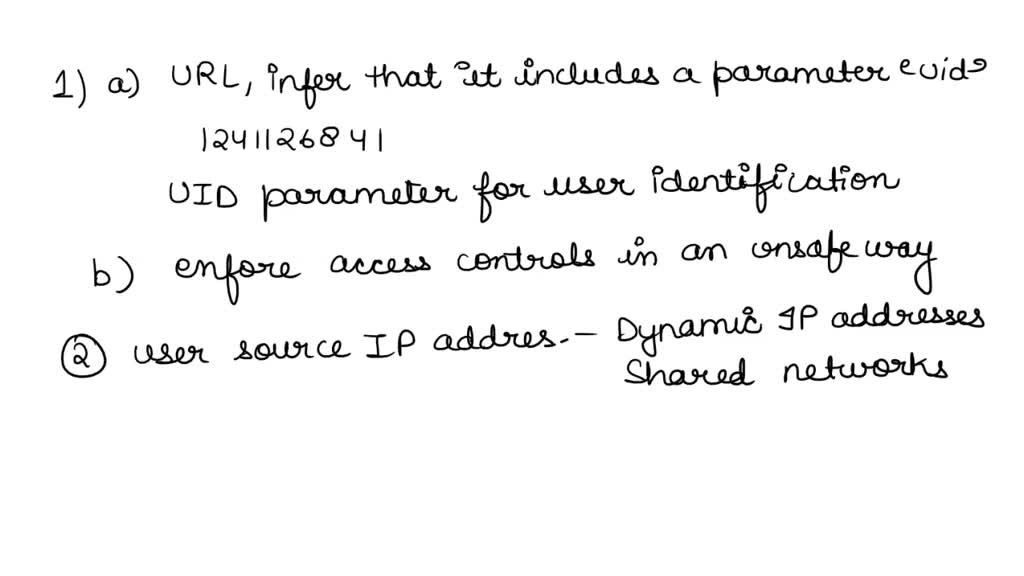 1) a) URL, infer that it includes a parameter
1241126841
UID parameter for user identification
b) enfore access controls in an unsafe way
② user source IP addres. – Dynamic IP addresses
Shared networks